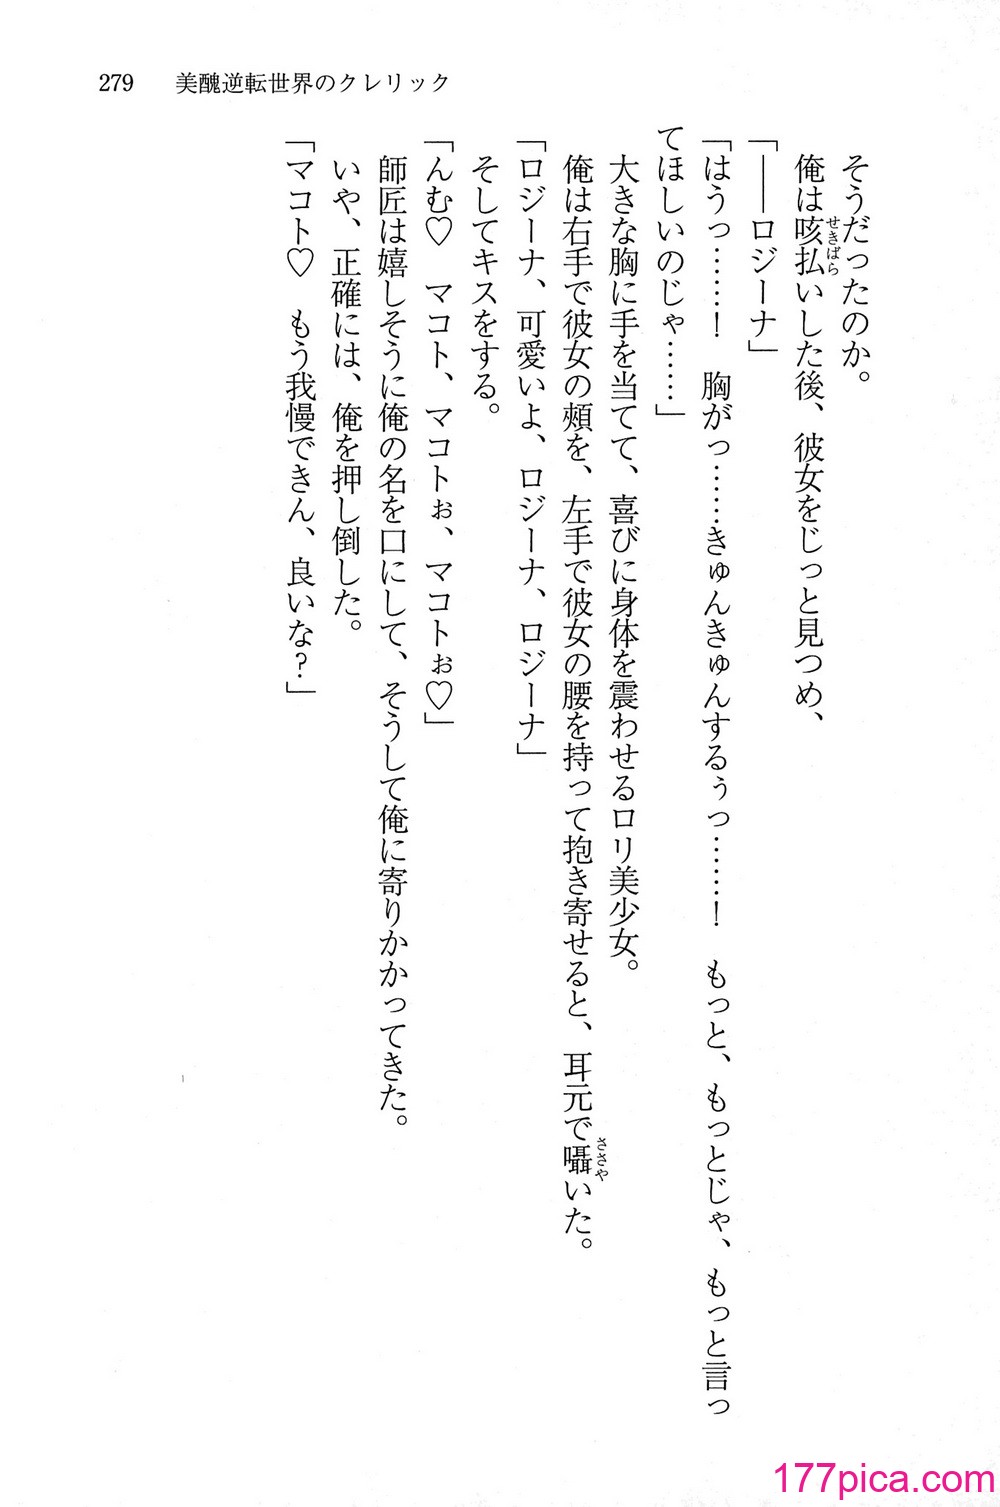 279 美醜逆転世界のクレリック
そうだったのか。
俺は咳払いした後、彼女をじっと見つめ、
せきばら
「――ロジーナ」
「はうっ……！　胸がっ……きゅんきゅんするぅっ……！　もっと、もっとじゃ、もっと言っ
てほしいのじゃ……」
大きな胸に手を当てて、喜びに身体を震わせるロリ美少女。
俺は右手で彼女の頬を、左手で彼女の腰を持って抱き寄せると、耳元で囁いた。
ささや
「ロジーナ、可愛いよ、ロジーナ、ロジーナ」
そしてキスをする。
「んむ♡　マコト、マコトぉ、マコトぉ♡」
師匠は嬉しそうに俺の名を口にして、そうして俺に寄りかかってきた。
いや、正確には、俺を押し倒した。
「マコト♡　もう我慢できん、良いな？」
177pica.com